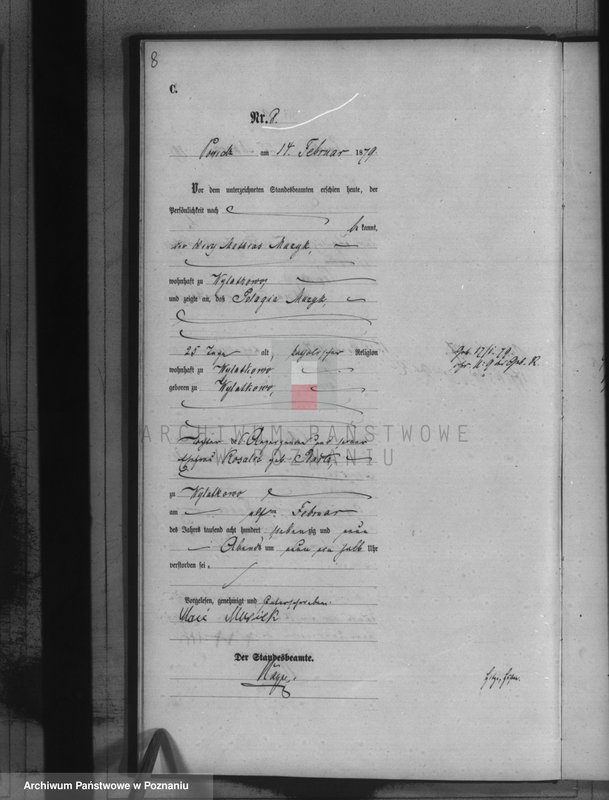 8
C.
Nr. 8.
am 14. Februar 1879
Vor dem unterzeichneten Standesbeamten erschien heute, der
Persönlichkeit nach
bekannt,
der Wirth Mathias Muzyk,
wohnhaft zu Wylatkowo,
und zeigte an, daß Pelagia Muzyk,
25 Tage alt, katholischer Religion
wohnhaft zu Wylatkowo
geboren zu Wylatkowo,
ARCHIWUM PAŃSTWOWE
W POZNANIU
Tochter des Angezeigten und seiner
Ehefrau Rosalie geb.
zu Wylatkowo
am elften Februar
des Jahres tausend acht hundert siebenzig und neun
Abends um neun ein halb Uhr
verstorben sei.
Vorgelesen, genehmigt und unterschrieben.
Muzick
Der Standesbeamte.
Geb. 17/1. 79.
Archiwum Państwowe w Poznaniu